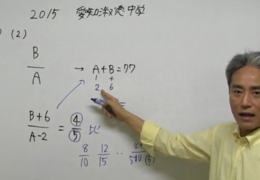 2015 愛知淑徳中学
(2)
B/A → A+B=77
1 4
2 6
B+6/A-2 = ④/⑤ 比
8/10 12/15 ‥